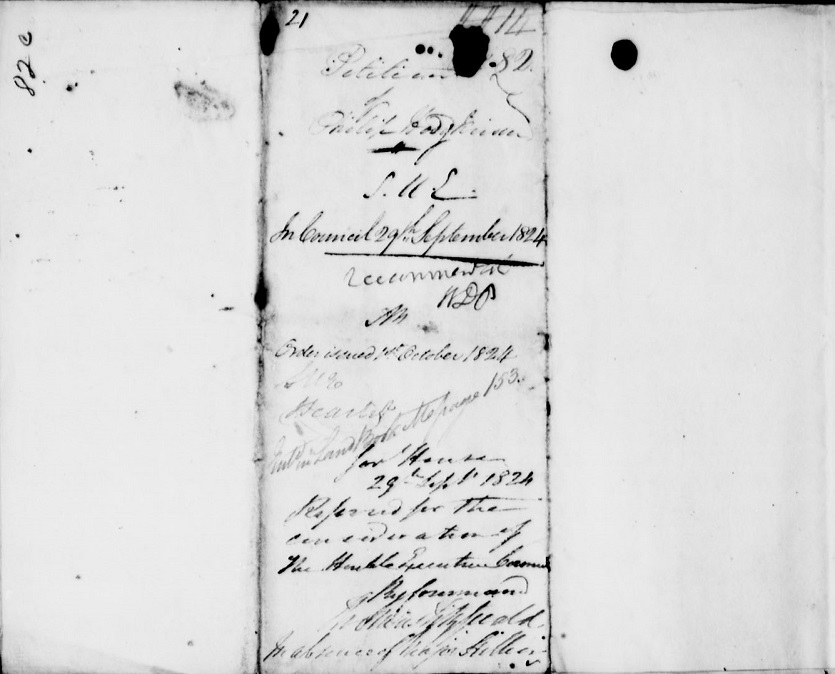 82c
21
H 14
Petition 82.
of
Philip Hodgkinson
S. U E.
In Council 29th September 1824
recommended
WDP
Order issued 1st October 1824
Ent'd in Land Book M page 153.
Gov't House
29th Sept'r 1824
Referred for the
consideration of
The Hon'ble Executive Council
By Command
In absence of Major Hillier